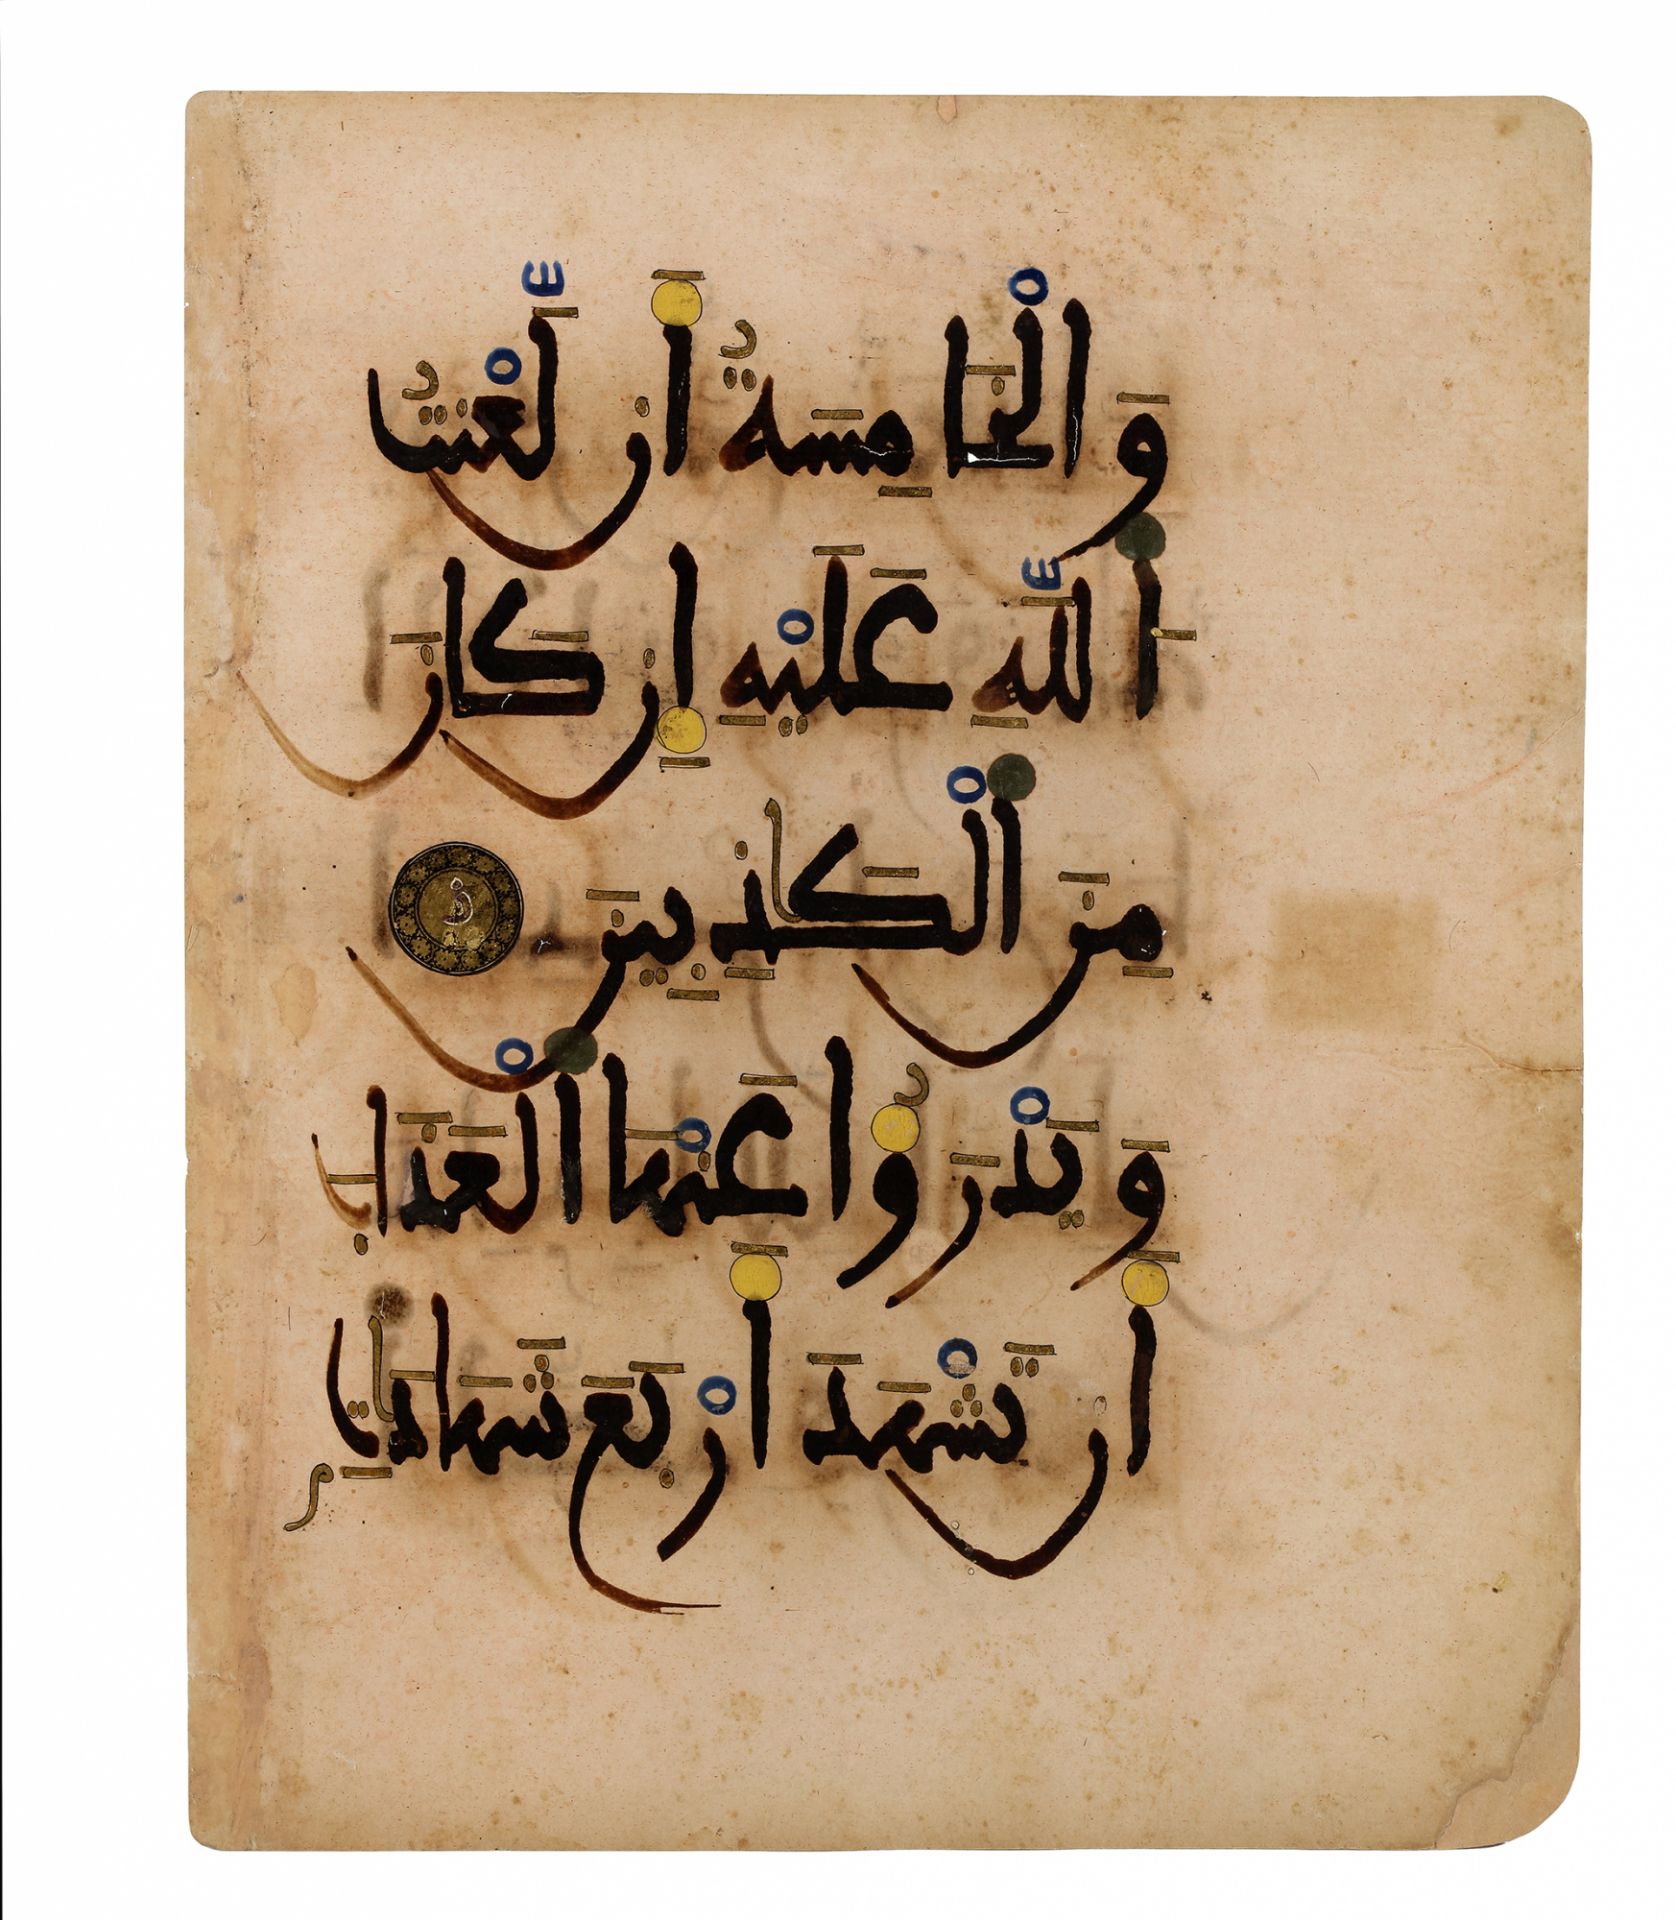 وَالْخَامِسَةُ أَن لَّعْنَتُ
اللَّهِ عَلَيْهِ إِن كَانَ
مِنَ الْكَٰذِبِينَ
وَيَدْرَؤُا عَنْهَا الْعَذَابَ
أَن تَشْهَدَ أَرْبَعَ شَهَادَٰتِۭ